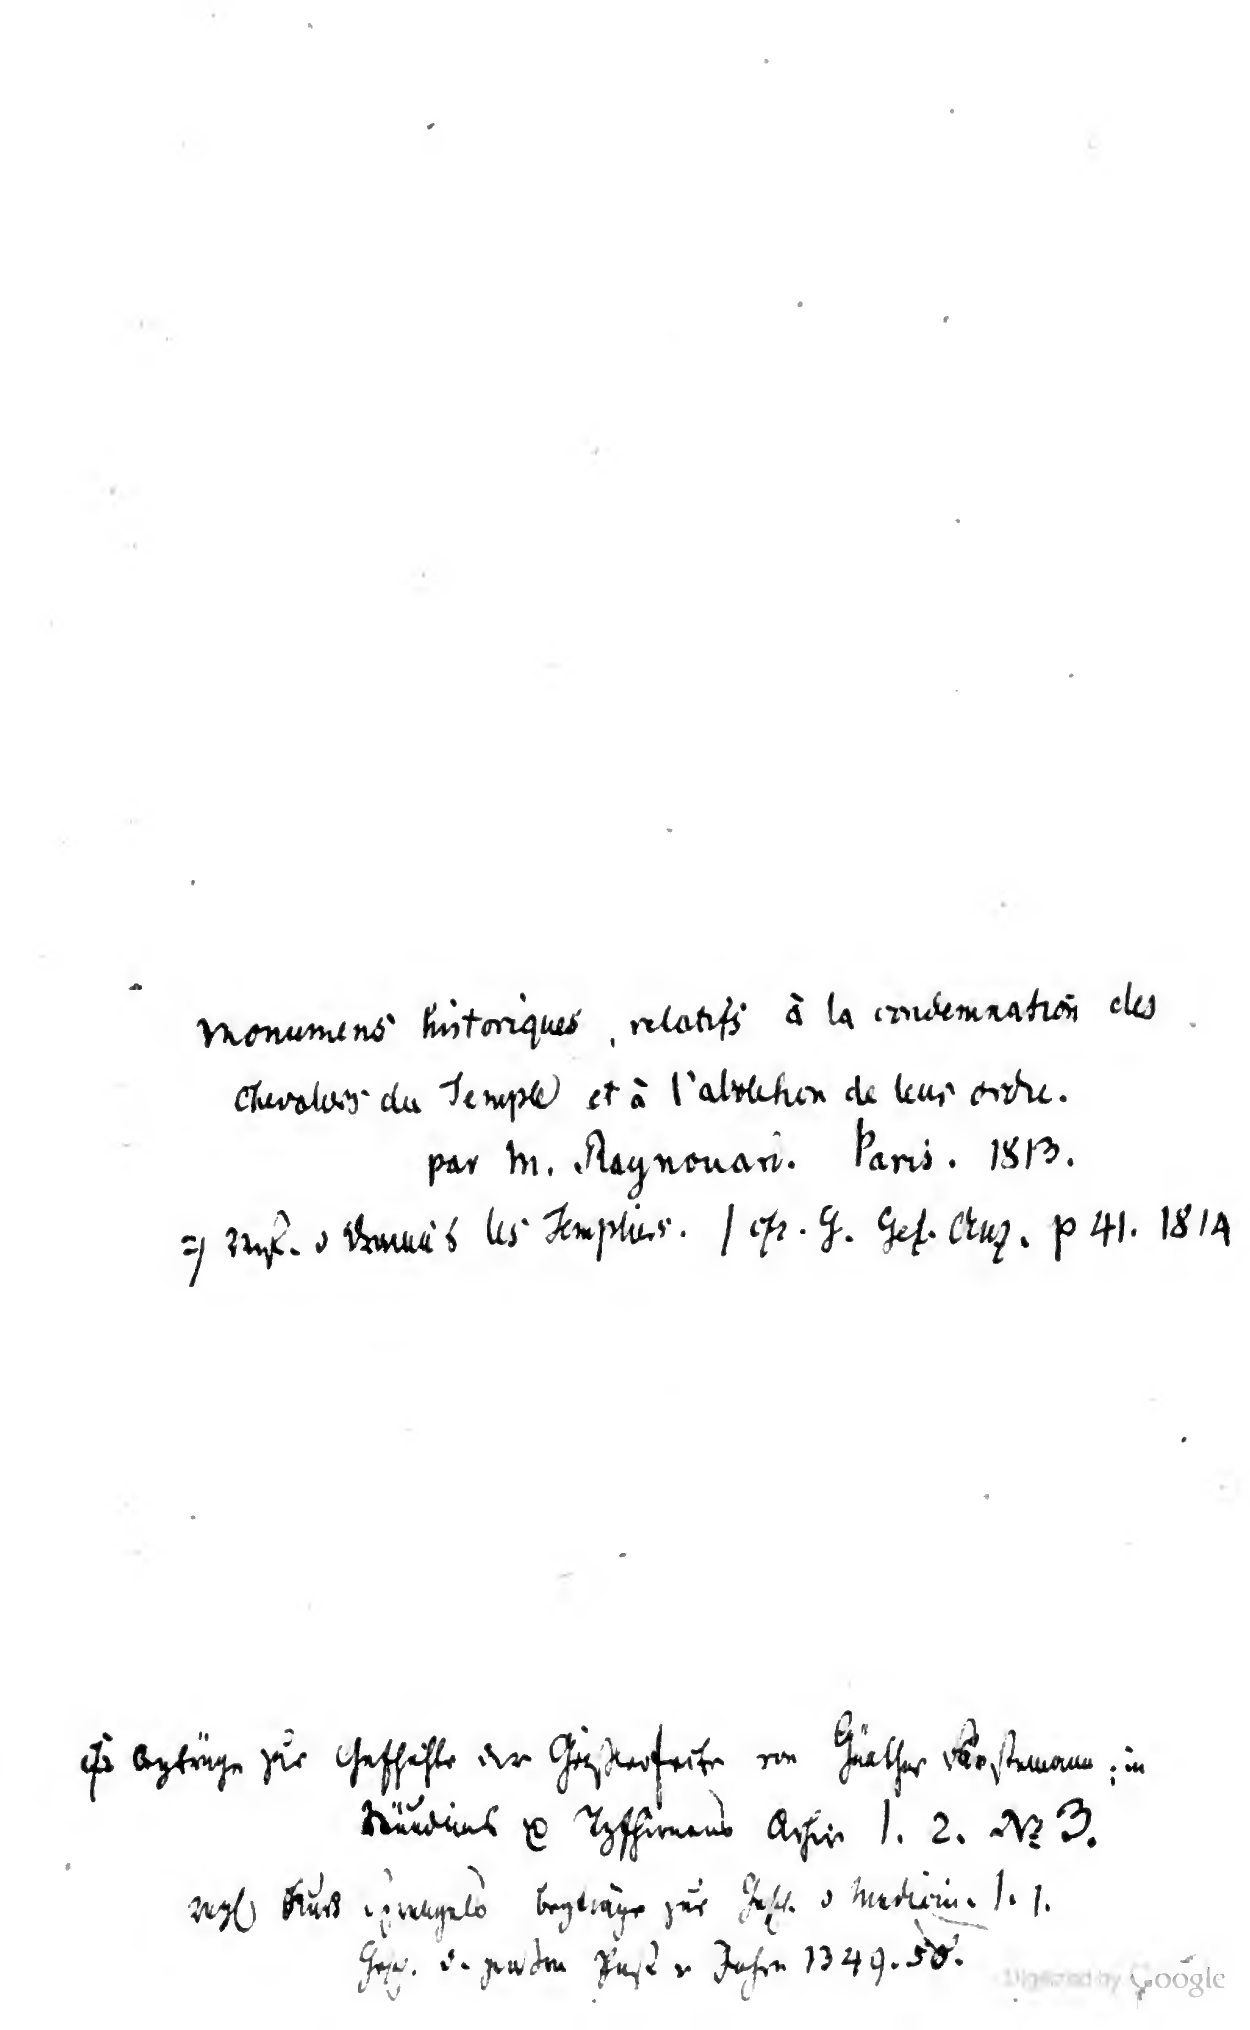 Monumens historiques, relatifs à la condemnation des
Chevaliers du Temple et à l'abolition de leur ordre.
par M. Raynouard. Paris. 1813.
les Templiers. / cfr. G. Gel. Anz. p 41. 1814
Beyträge zur Geschichte der Geißler von Günther Förstemann; in
Stäudlins & Tzschirners Archiv 1. 2. № 3.
vergl Kurt Sprengels Beyträge zur Gesch. d Medicin. 1. 1.
Gesch. d. Pest v Jahre 1349. 50.
Digitized by Google